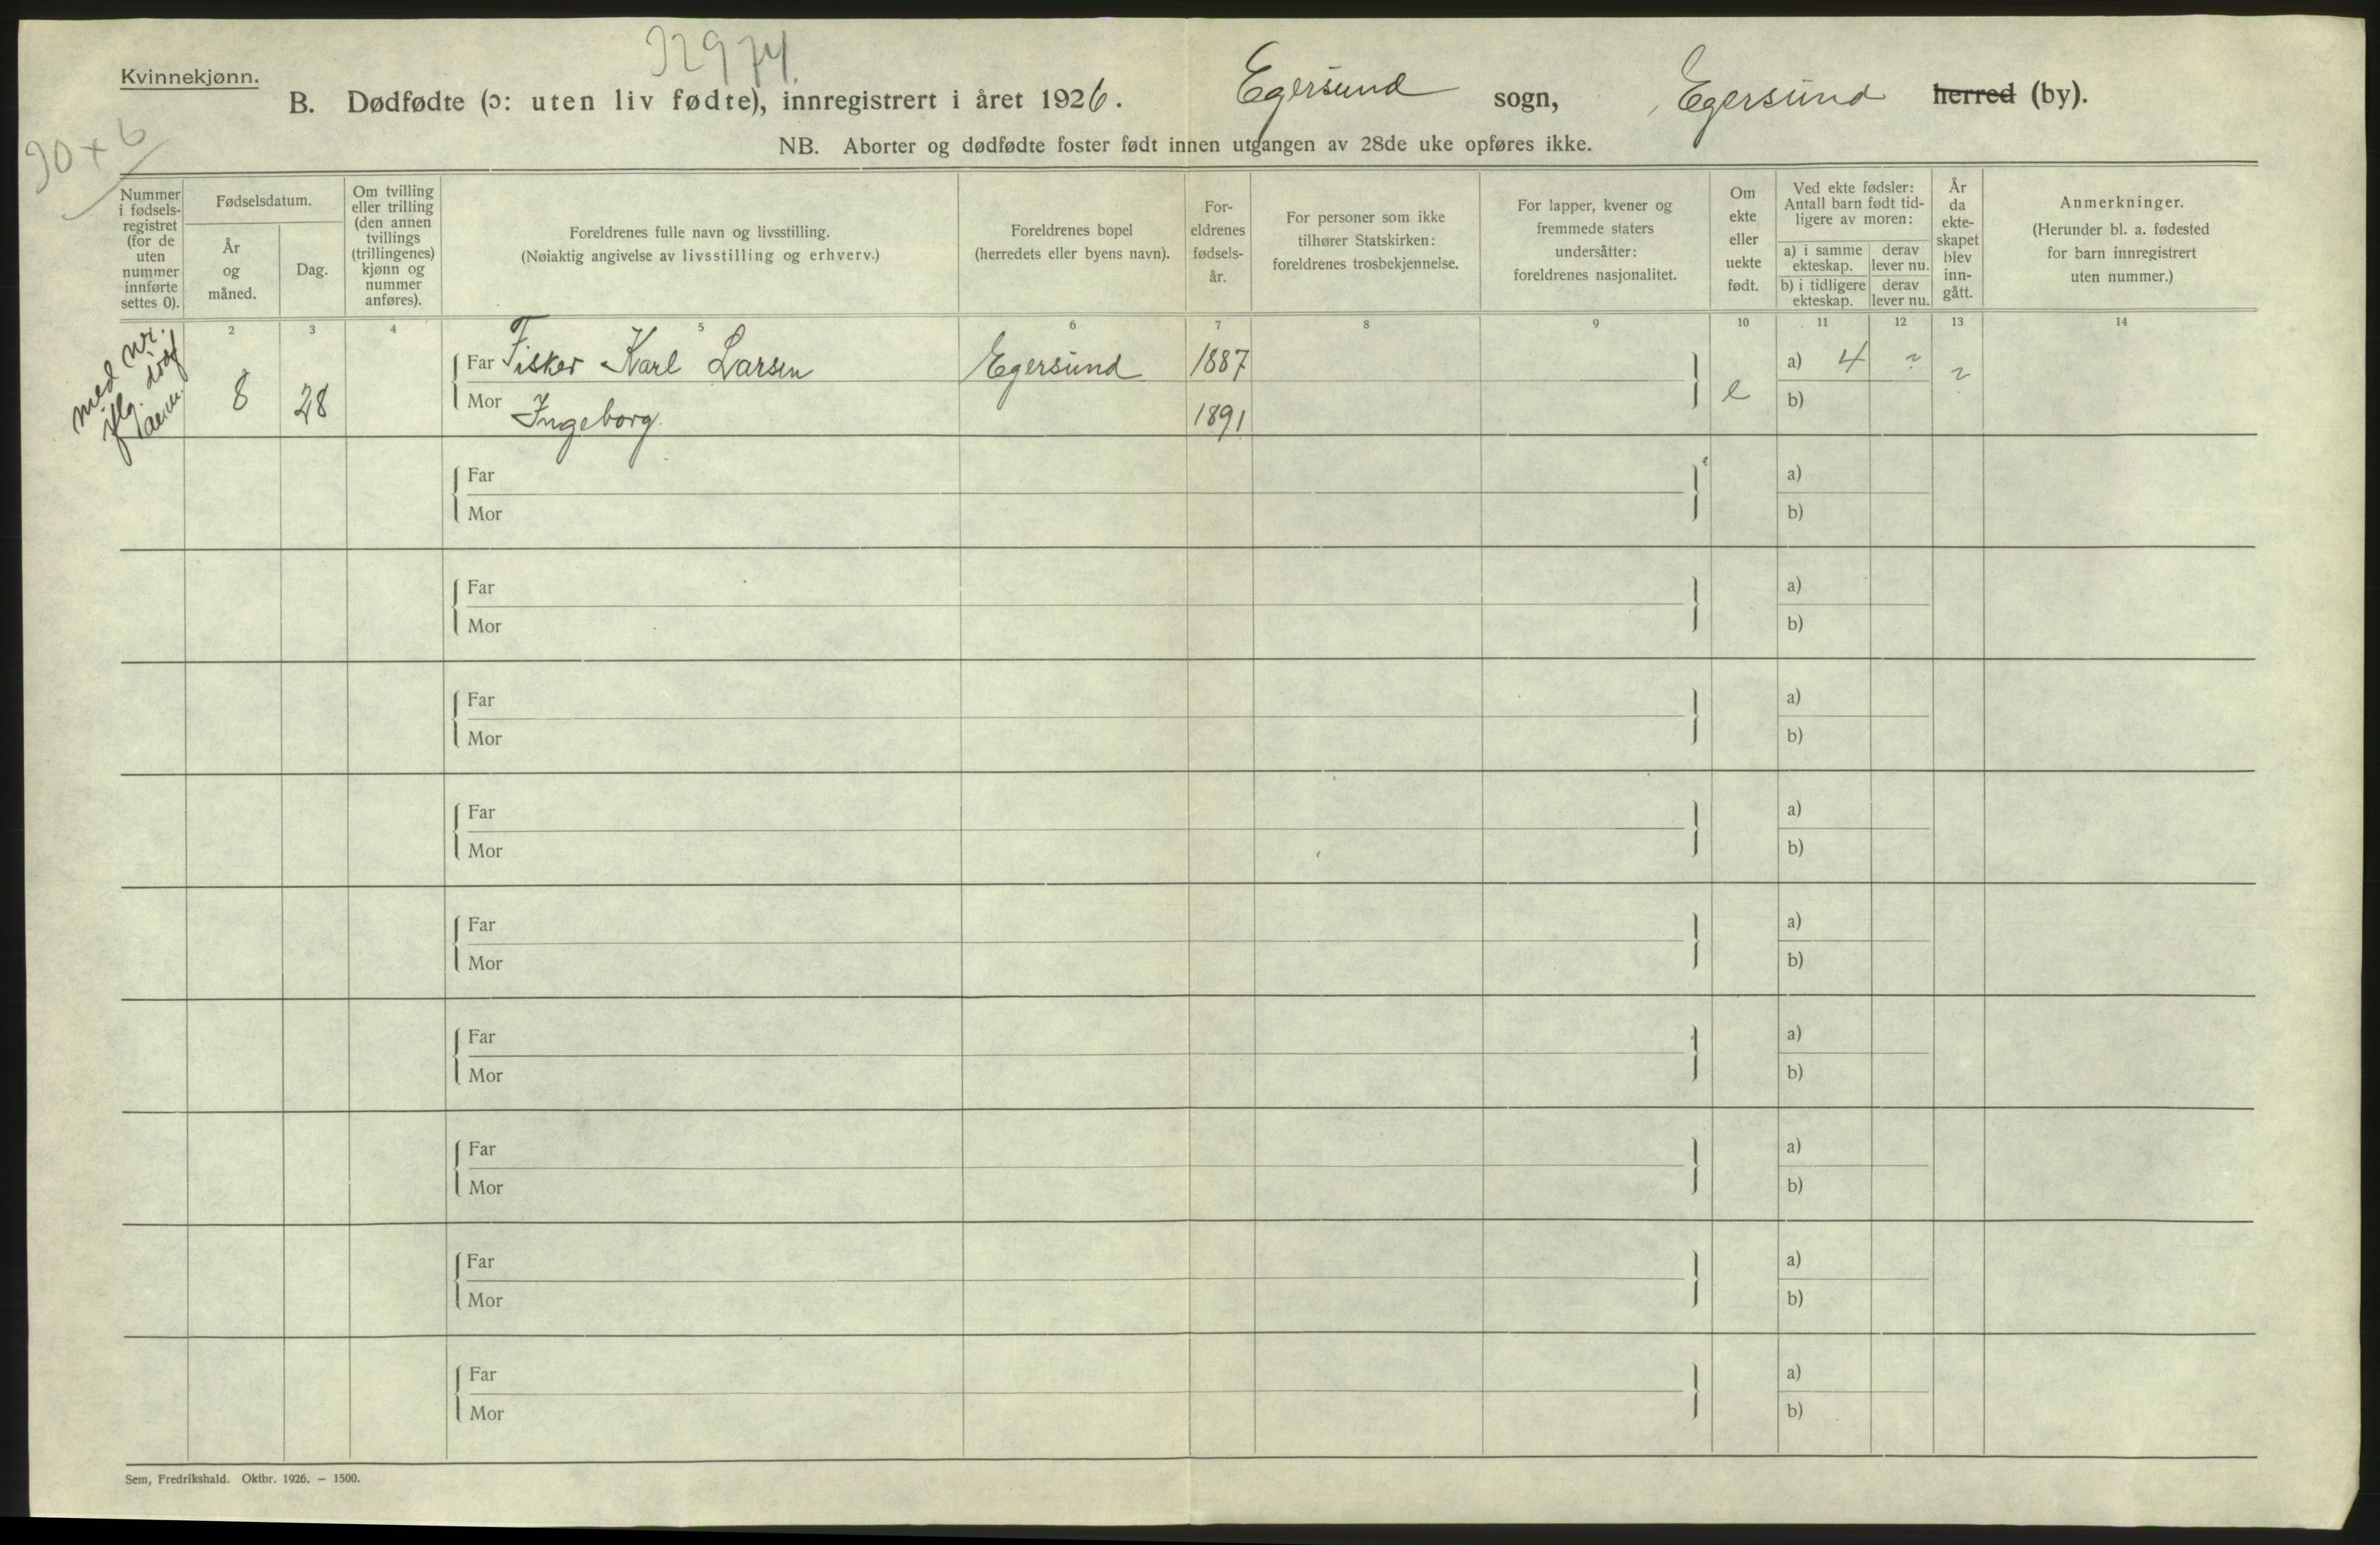 32974.
Kvinnekjønn.
B. Dødfødte (ɔ: uten liv fødte), innregistrert i året 1926. Egersund sogn, Egersund herred (by).
30+6
NB. Aborter og dødfødte foster født innen utgangen av 28de uke opføres ikke.
Nummer
i fødsels-
registret
(for de
uten
nummer
innførte
settes 0).
Fødselsdatum.
År
og
måned.
Dag.
Om tvilling
eller trilling
(den annen
tvillings
(trillingenes)
kjønn og
nummer
anføres).
Foreldrenes fulle navn og livsstilling.
(Nøiaktig angivelse av livsstilling og erhverv.)
Foreldrenes bopel
(herredets eller byens navn).
For-
eldrenes
fødsels-
år.
For personer som ikke
tilhører Statskirken:
foreldrenes trosbekjennelse.
For lapper, kvener og
fremmede staters
undersåtter:
foreldrenes nasjonalitet.
Om
ekte
eller
uekte
født.
Ved ekte fødsler:
Antall barn født tid-
ligere av moren:
a) i samme
ekteskap.
derav
lever nu.
b) i tidligere
ekteskap.
derav
lever nu.
År
da
ekte-
skapet
blev
inn-
gått.
Anmerkninger.
(Herunder bl. a. fødested
for barn innregistrert
uten nummer.)
2 3 4 5 6 7 8 9 10 11 12 13 14
med nr.
8 28
Far Fisker Karl Larsen Egersund 1887 e a) 4 ? ?
Mor Ingeborg. 1891 b)
Far a)
Mor b)
Far a)
Mor b)
Far a)
Mor b)
Far a)
Mor b)
Far a)
Mor b)
Far a)
Mor b)
Far a)
Mor b)
Far a)
Mor b)
Far a)
Mor b)
Sem, Fredrikshald. Oktbr. 1926. — 1500.